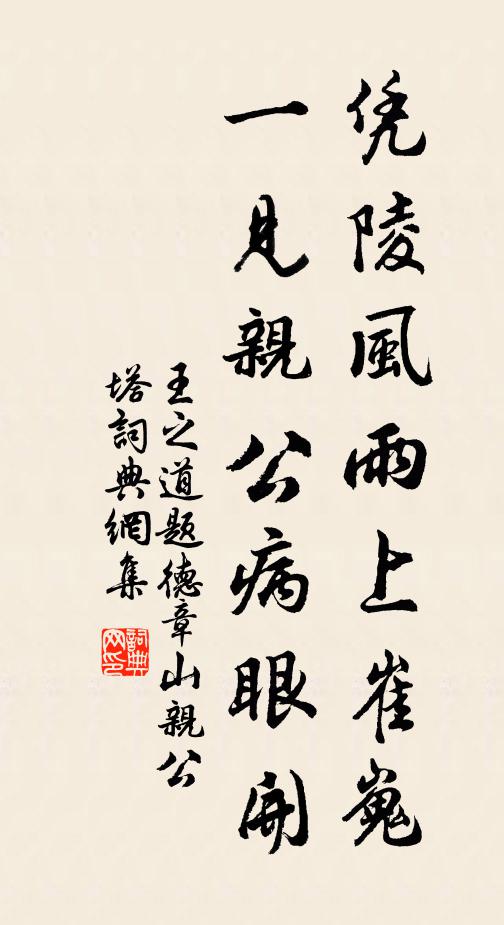 凭陵風雨上崔嵬
一見親公病眼開
王之道題德章山親公
塔詞典網集
詞典网印